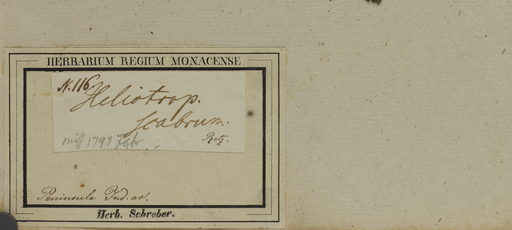 HERBARIUM REGIUM MONACENSE
N. 116.
Heliotrop.
scabrum.
Retz.
miss 1797 Febr
Peninsula Ind. or.
Herb. Schreber.